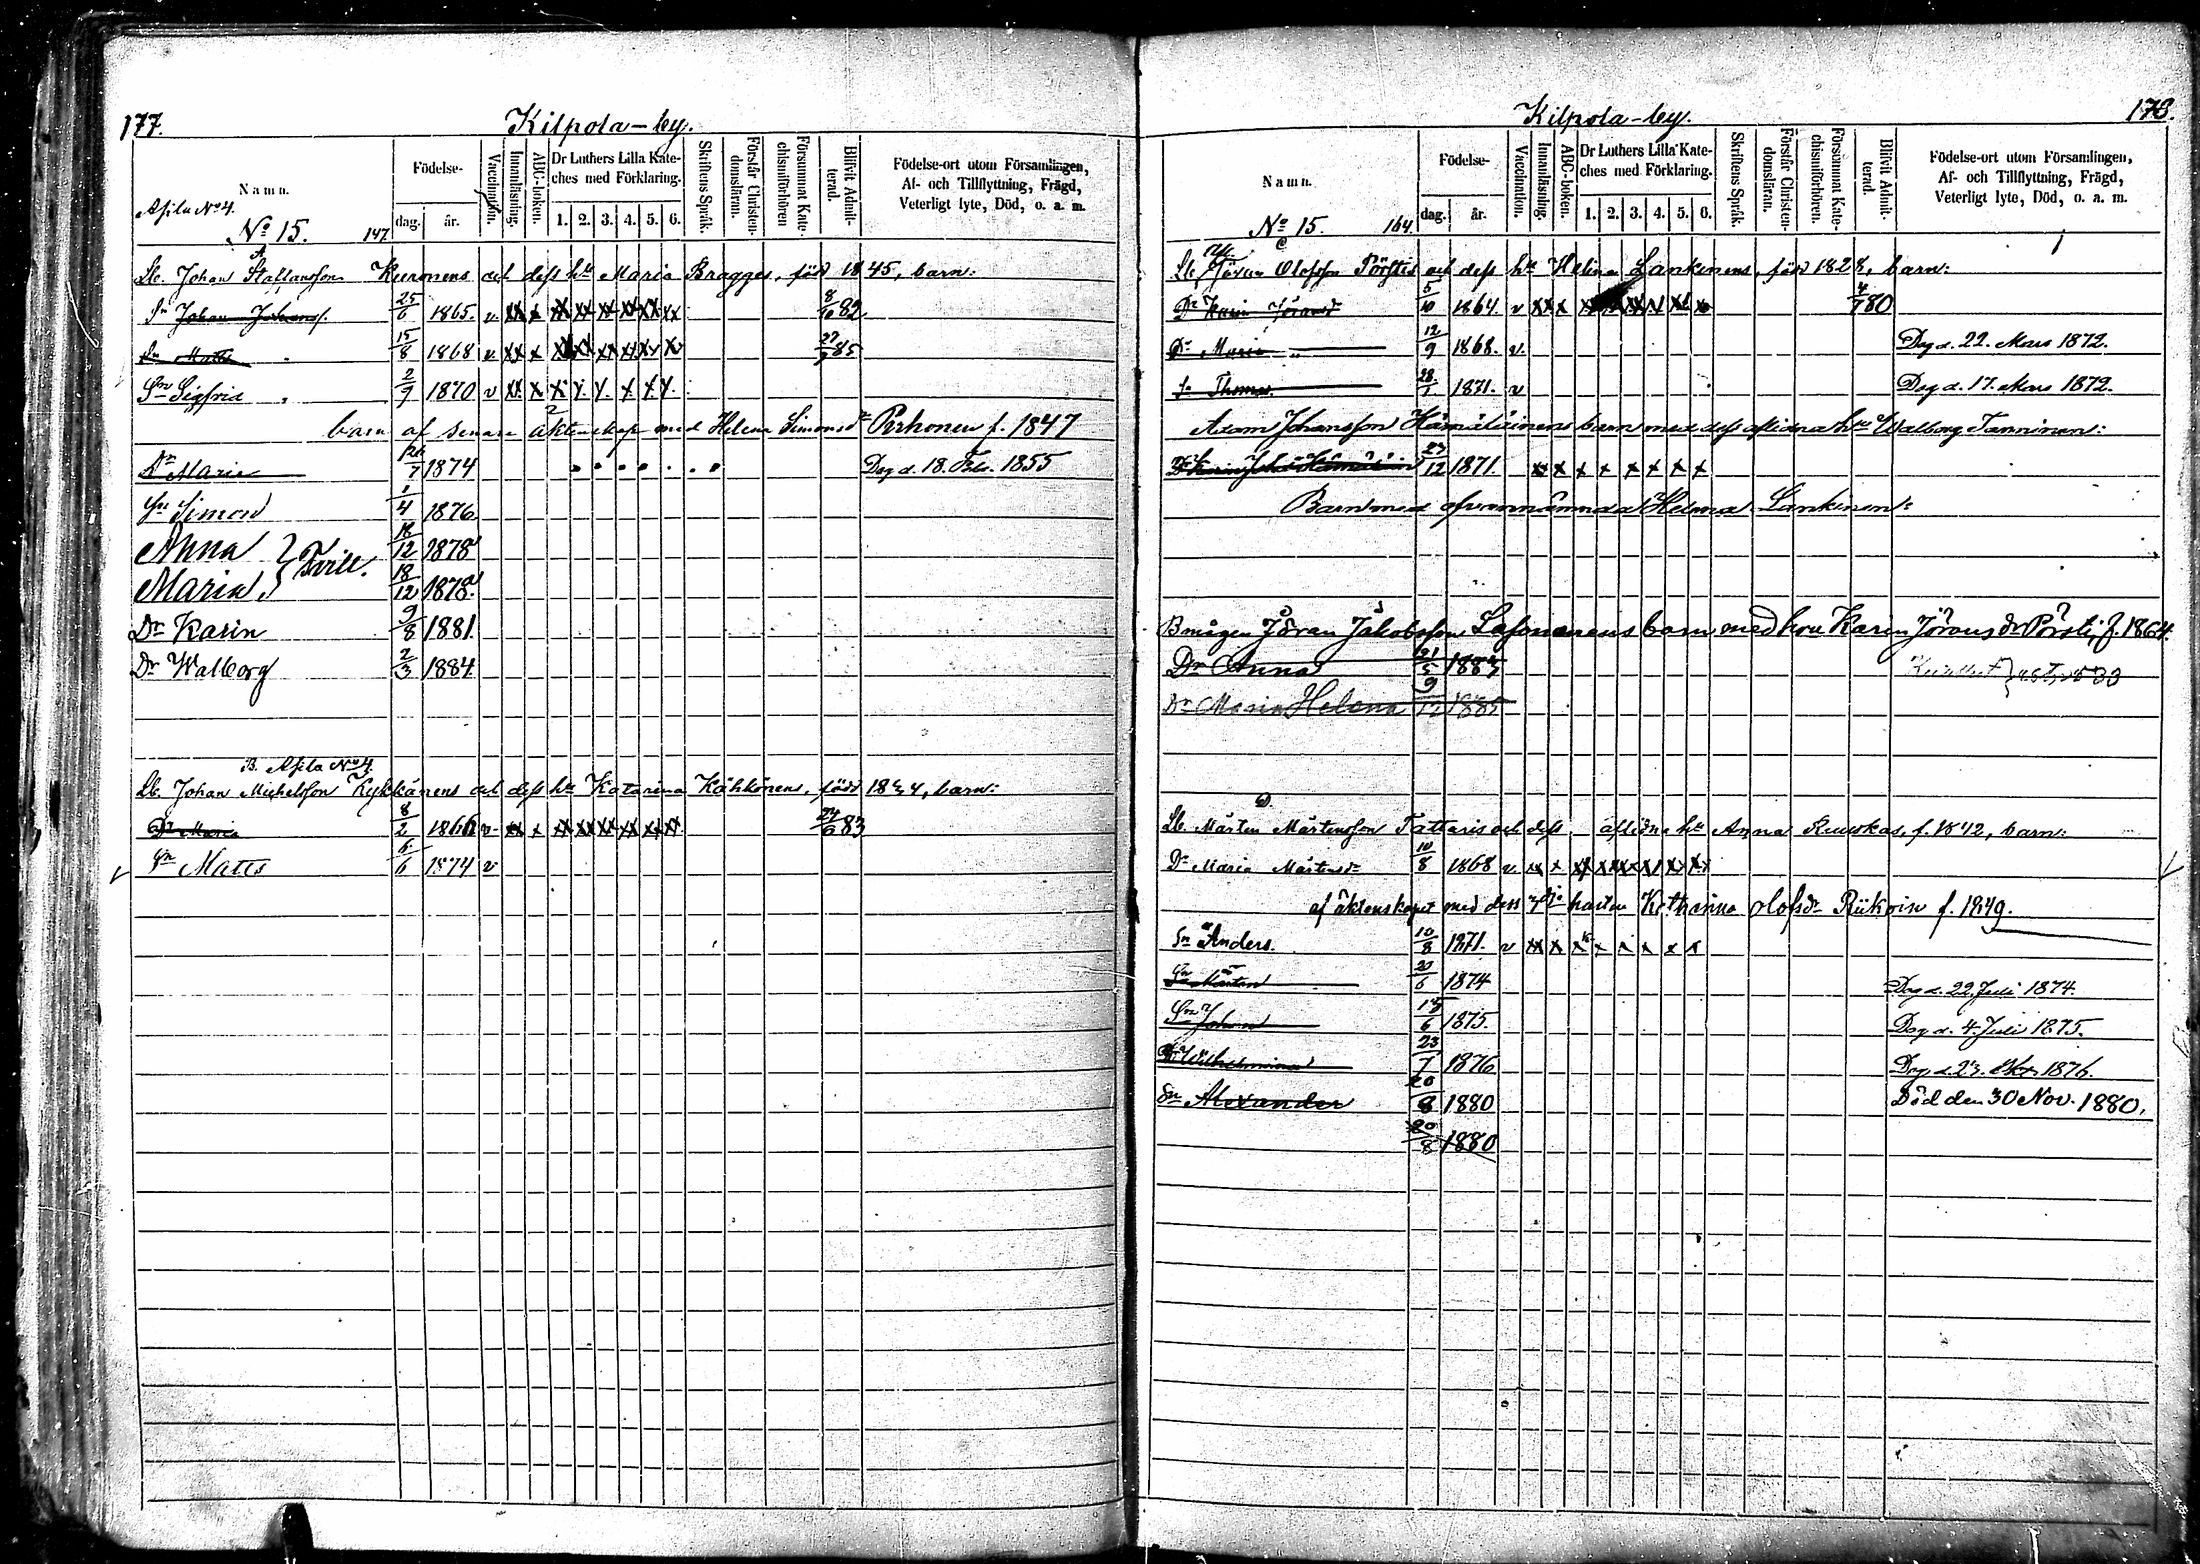 177.
Kilpola-by.
Namn.
Födelse-
dag.
år.
Vaccination.
Innanläsning.
ABC-boken.
Dr Luthers Lilla Kate-
ches med Förklaring.
1. 2. 3. 4. 5. 6.
Skriftens Språk.
Förstår Christen-
domsläran.
Försummat Kate-
chismiförhören
Blifvit Admit-
terad.
Födelse-ort utom Församlingen,
Af- och Tillflyttning, Frägd,
Veterligt lyte, Död, o. a. m.
Asila No 4.
No 15. 147.
A
Lb. Johan Staffansson Kuronens och dess hu Maria Bragges, född 1845, barn:
Sn Johan Johanss. 25/6 1865. v xx x xx xx xx xx xx xx 82
Sn Matts 15/8 1868 v xx x 27/9 85
Sn Sigfrid 2/9 1870 v xx x x x x x x x
barn af senare äktenskap med Helena Simonsdr Pirhonen f. 1847
Dr Maria 26/7 1874 Dog d. 18. Feb. 1855
Sn Simon 1/4 1876
Anna } Tvill. 18/12 1878
Maria } 18/12 1878
Dr Karin 9/8 1881
Dr Walborg 2/3 1884
B. Asila No 4.
Lb. Johan Michelsson Kykkänens och dess hu Katarina Kähkönens, född 1844, barn:
Dr Maria 8/2 1866 v xx x xx xx xx xx xx xx 24/6 83
Sn Matts 6/6 1874 v
178.
Kilpola-by.
Namn.
Födelse-
dag.
år.
Vaccination.
Innanläsning.
ABC-boken.
Dr Luthers Lilla Kate-
ches med Förklaring.
1. 2. 3. 4. 5. 6.
Skriftens Språk.
Förstår Christen-
domsläran.
Försummat Kate-
chismiförhören.
Blifvit Admit-
terad.
Födelse-ort utom Församlingen,
Af- och Tillflyttning, Frägd,
Veterligt lyte, Död, o. a. m.
No 15. 164.
C
Lb. Jöran Olofsson Pörsties och dess hu Helena Lankinens, född 1828, barn:
Dr Karin Jöransd 5/10 1864 v xx x 4/7 80
Dr Maria " 12/9 1868. v. Dog d. 22. Mars 1872.
Sn Thomas 28/1 1871. v Dog d. 17. Mars 1872.
Adam Johansson Hämäläinens barn med dess aflidna hu Walborg Tanninen:
Dr Karin 27/12 1871. xx x x x x x x x
Barn med ofvannämnda Helena Lankinen:
Bmågen Jöran Jakobsson Lasonanens barn med hon Karin Jörans dr Pörsti, f. 1864.
Dr Anna 21/5 1883
Dr Maria Helena 9/12 1885
D.
Lb. Mårten Mårtensson Tattaris och dess aflidna hu Anna Ruuskas, f. 1842, barn:
Dr Maria Mårtensdr 10/8 1868 v xx x
af äktenskapet med dess hustru Katharina Olofsdr Riikoin f. 1849.
Sn Anders. 10/8 1871. v xx x x x x x x x
Sn Mårten 20/6 1874 Dog d. 22. Juli 1874.
Sn Johan 15/6 1875. Dog d. 4. Juli 1875.
Dr Wilhelmina 23/7 1876 Dog d. 23. Okt. 1876.
Sn Alexander 20/8 1880 Död den 30 Nov. 1880.
20/8 1880